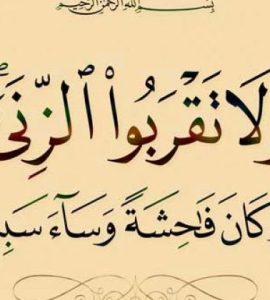 بِسْمِ اللَّهِ الرَّحْمَٰنِ الرَّحِيمِ
وَلَا تَقْرَبُوا۟ ٱلزِّنَىٰٓ
كَانَ فَـٰحِشَةً وَسَآءَ